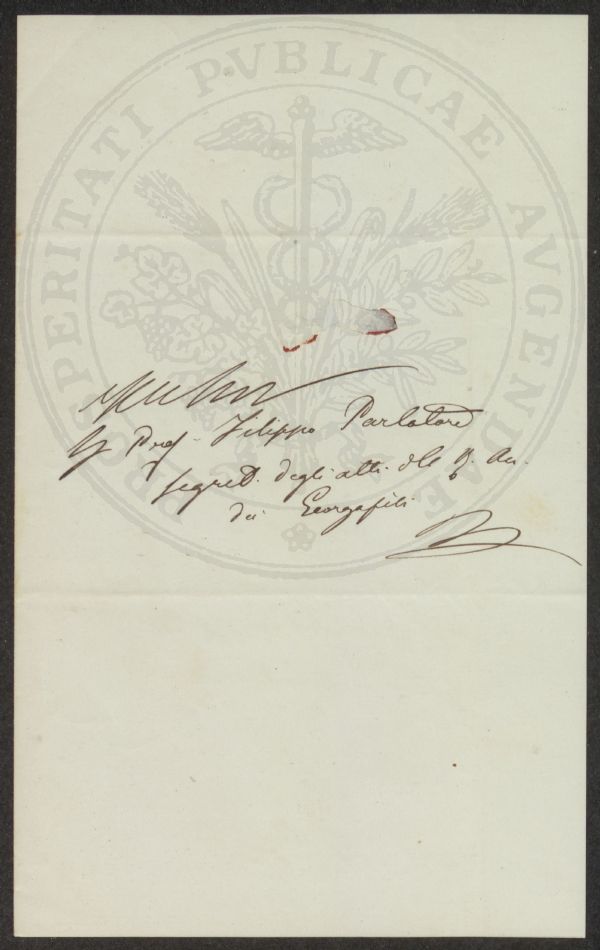 PROSPERITATI PVBLICAE AVGENDAE
Prof. Filippo Parlatore
Segret. degli atti d R. Ac.
dei Georgofili